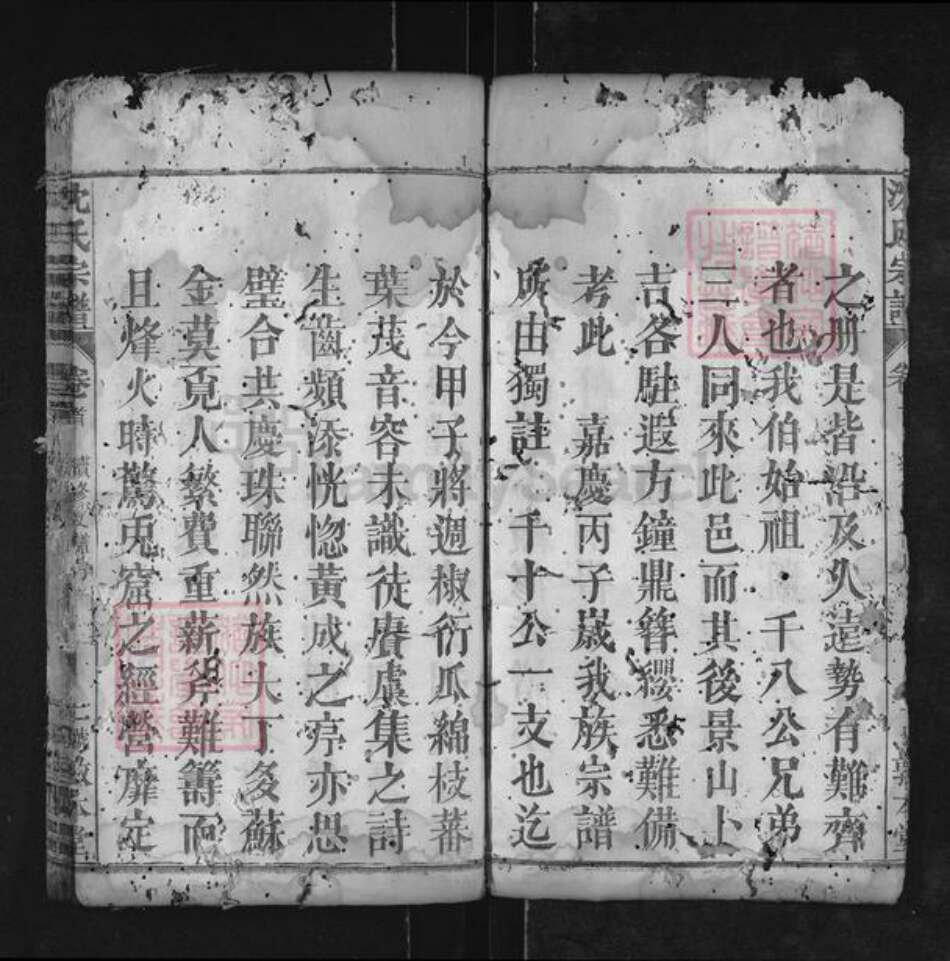 之册是皆浩及久遠勢有難齊
者也我伯始祖千八公兄弟
三人同來此邑而其後景山上
吉各駐遐方鐘鼎簪纓悉難備
考此嘉慶丙子歲我族宗譜
所由獨註千十公一支也迄
於今甲子將週椒衍瓜綿枝蕃
葉茂音容未識徒賡虞集之詩
生齒頻添恍惚黃成之亭亦思
璧合共慶珠聯然族大丁多蘇
金莫覓人繁費重薪斧難籌而
且烽火時驚兎窟之經營靡定
沈氏宗譜
卷首
FamilySearch